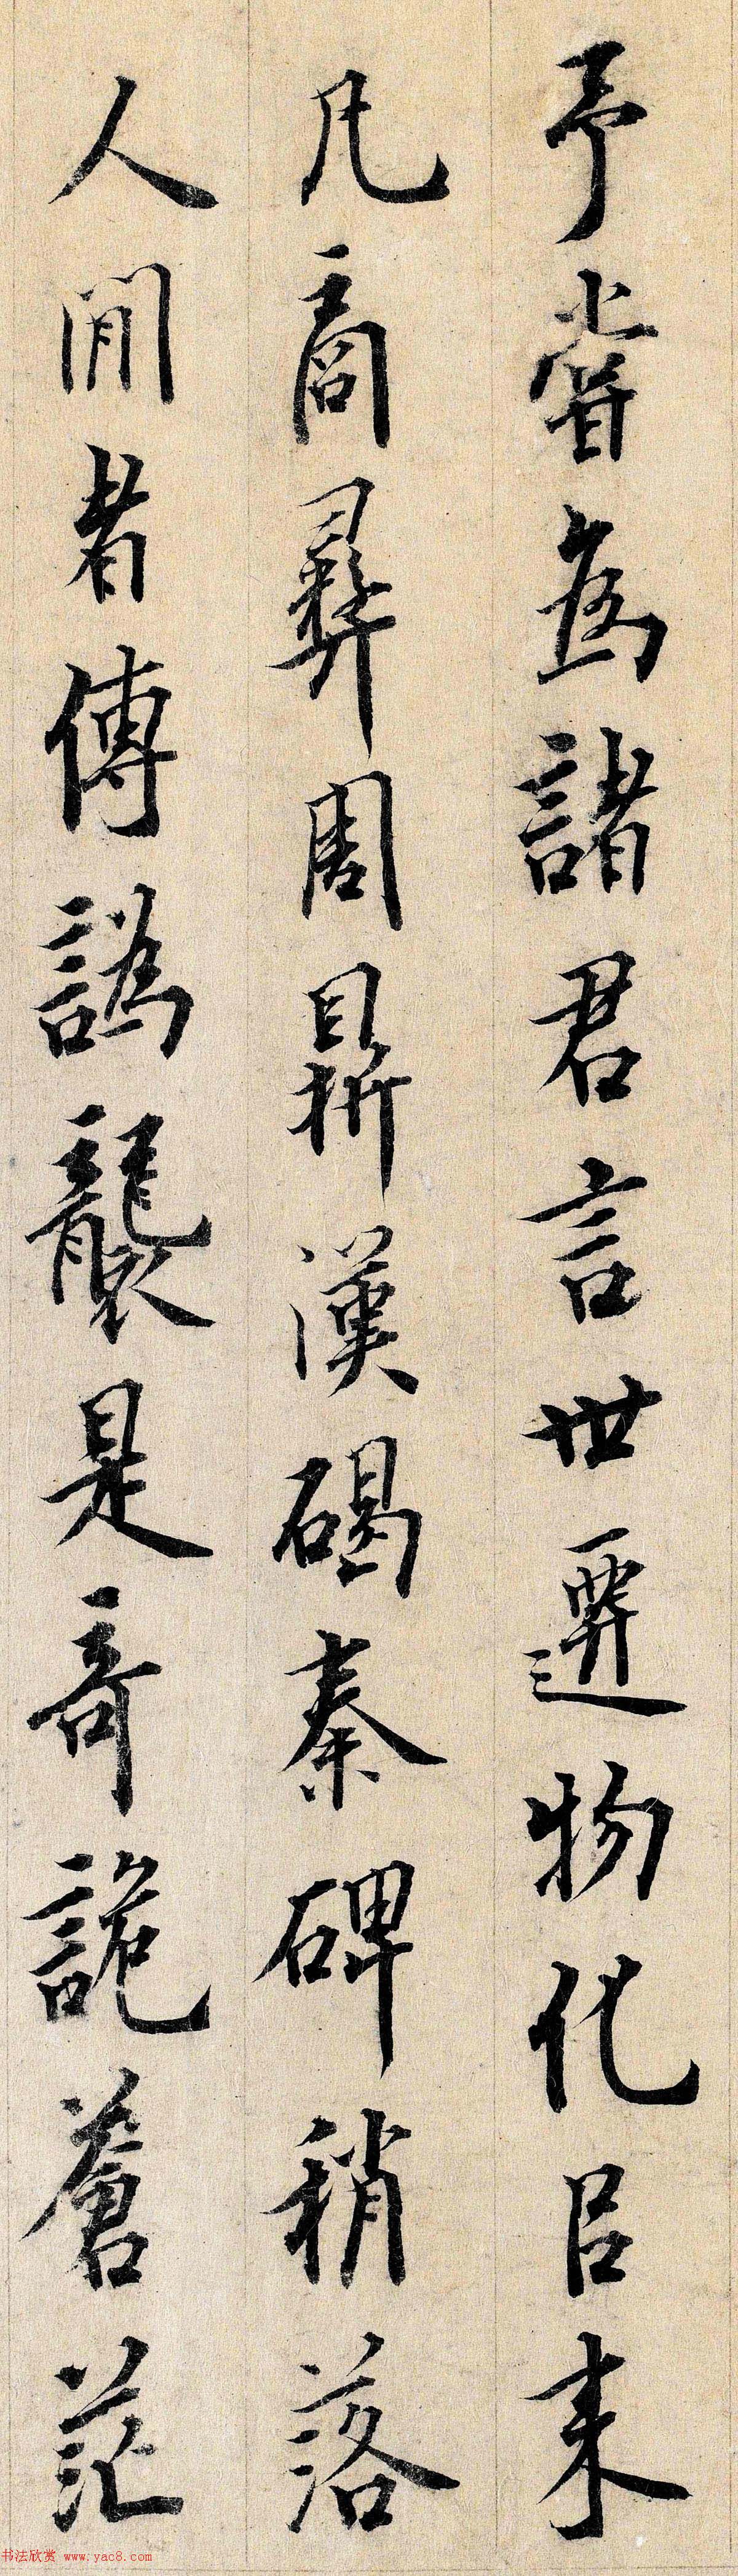 予嘗為諸君言世遷物化以來
凡商彝周鼎漢碣秦碑稍落
人間者傳譌襲是奇詭蒼茫
书法欣赏 www.yac8.com